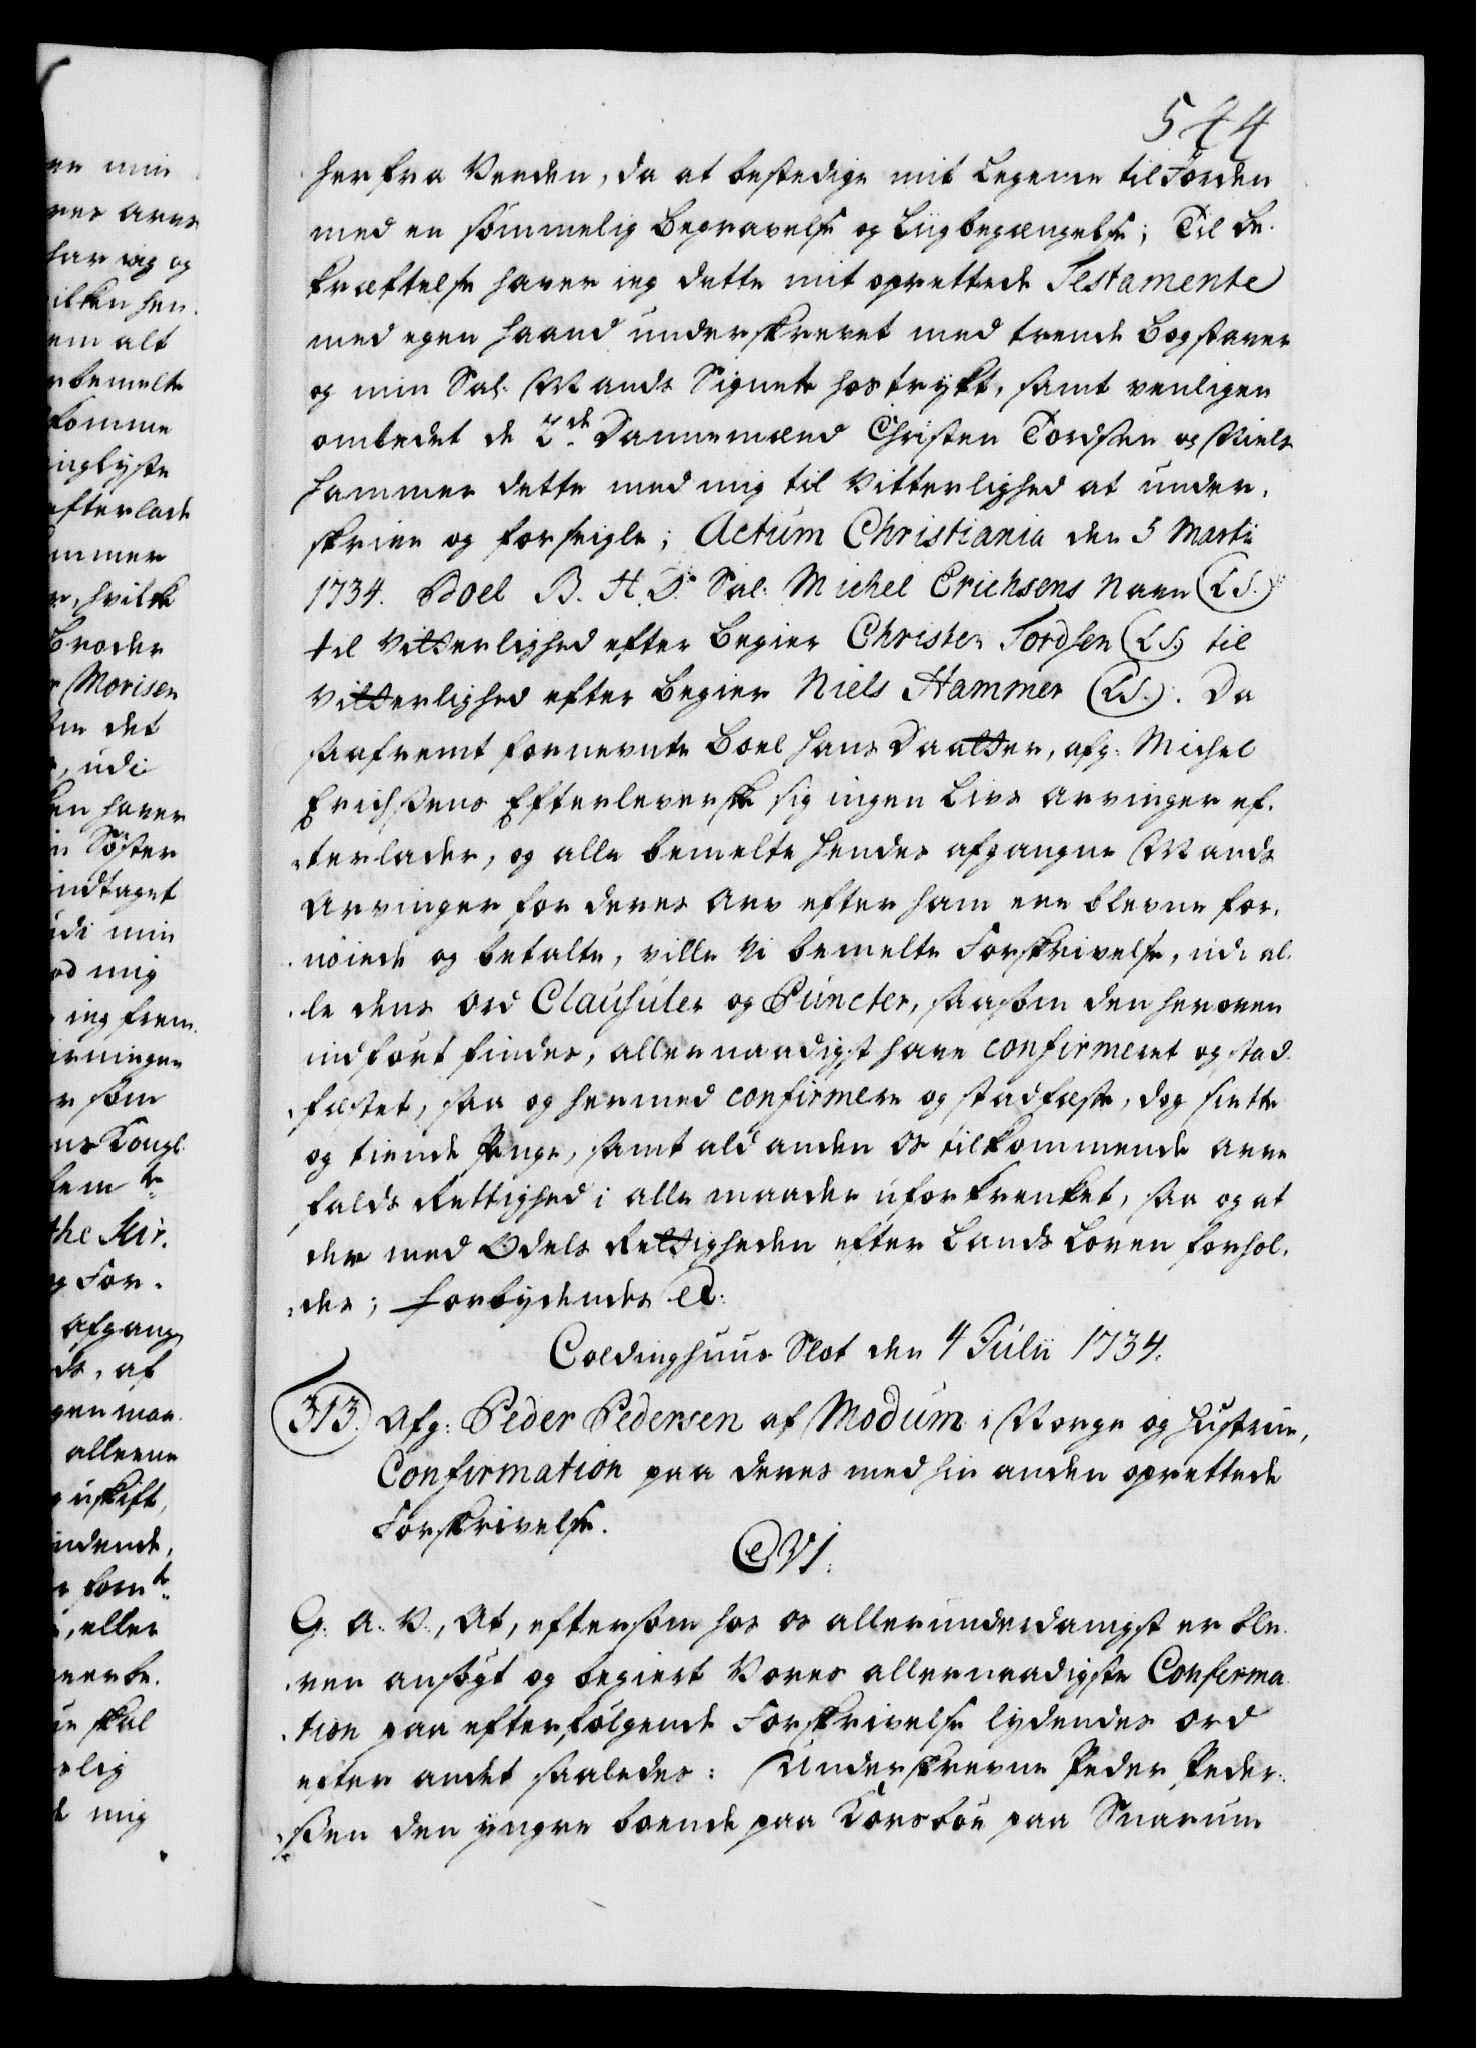 544
her fra Verden, da at bestedige mit Legeme til Jorden
med en sømmelig Begravelse og Liigbegængelse; Til Be-
kræftelse haver ieg dette mit oprettede Testamente
med egen Haand underskrevet med trende Bogstaver
og min Sal: Mands Signete hostrykt, samt venligen
ombedet de 2de Dannemænd Christen Tordsen og Niels
Hammer dette med mig til Vitterlighed at under-
skrive og forseigle; Actum Christiania den 5 Martii
1734. Boel B. H. D. Sal: Michel Erichsens Navn (L.S.)
til Vitterlighed efter Begier Christen Tordsen (L.S.) til
Vitterlighed efter Begier Niels Hammer (L.S.). Da
saafremt fornevnte Boel Hans Daatter, afg: Michel
Erichsens Efterleverske sig ingen Livs Arvinger ef-
terlader, og alle bemelte hendes afgangne Mands
Arvinger for deres Arv efter ham ere blevne for-
nøiede og betalte, ville Vi bemelte Forskrivelse, udi al-
le dens Ord Clausuler og Puncter, saasom den herover
indført findes, allernaadigst have confirmeret og stad-
fæstet, saa og hermed confirmere og stadfæste, dog siette
og tiende Penge, samt ald anden Os tilkommende Arve
falds Rettighed i alle maader uforkrenket, saa og at
der med Odels Rettigheden efter Lands Loven forhol-
des; Forbydendes etc:
Coldinghuus Slot den 4 Julii 1734.
313. Afg: Peder Pedersen af Modum i Norge og Hustrue,
Confirmation paa deres med hin anden oprettede
Forskrivelse.
C VI.
G. A. V., At, eftersom hos os allerunderdanigst er ble-
ven ansøgt og begiert Vores allernaadigste Confirma-
tion paa efterfølgende Forskrivelse lydendes Ord
efter andet saaledes: Underskrevne Peder Peder-
sen den yngre boende paa Korsbøe paa Snarum